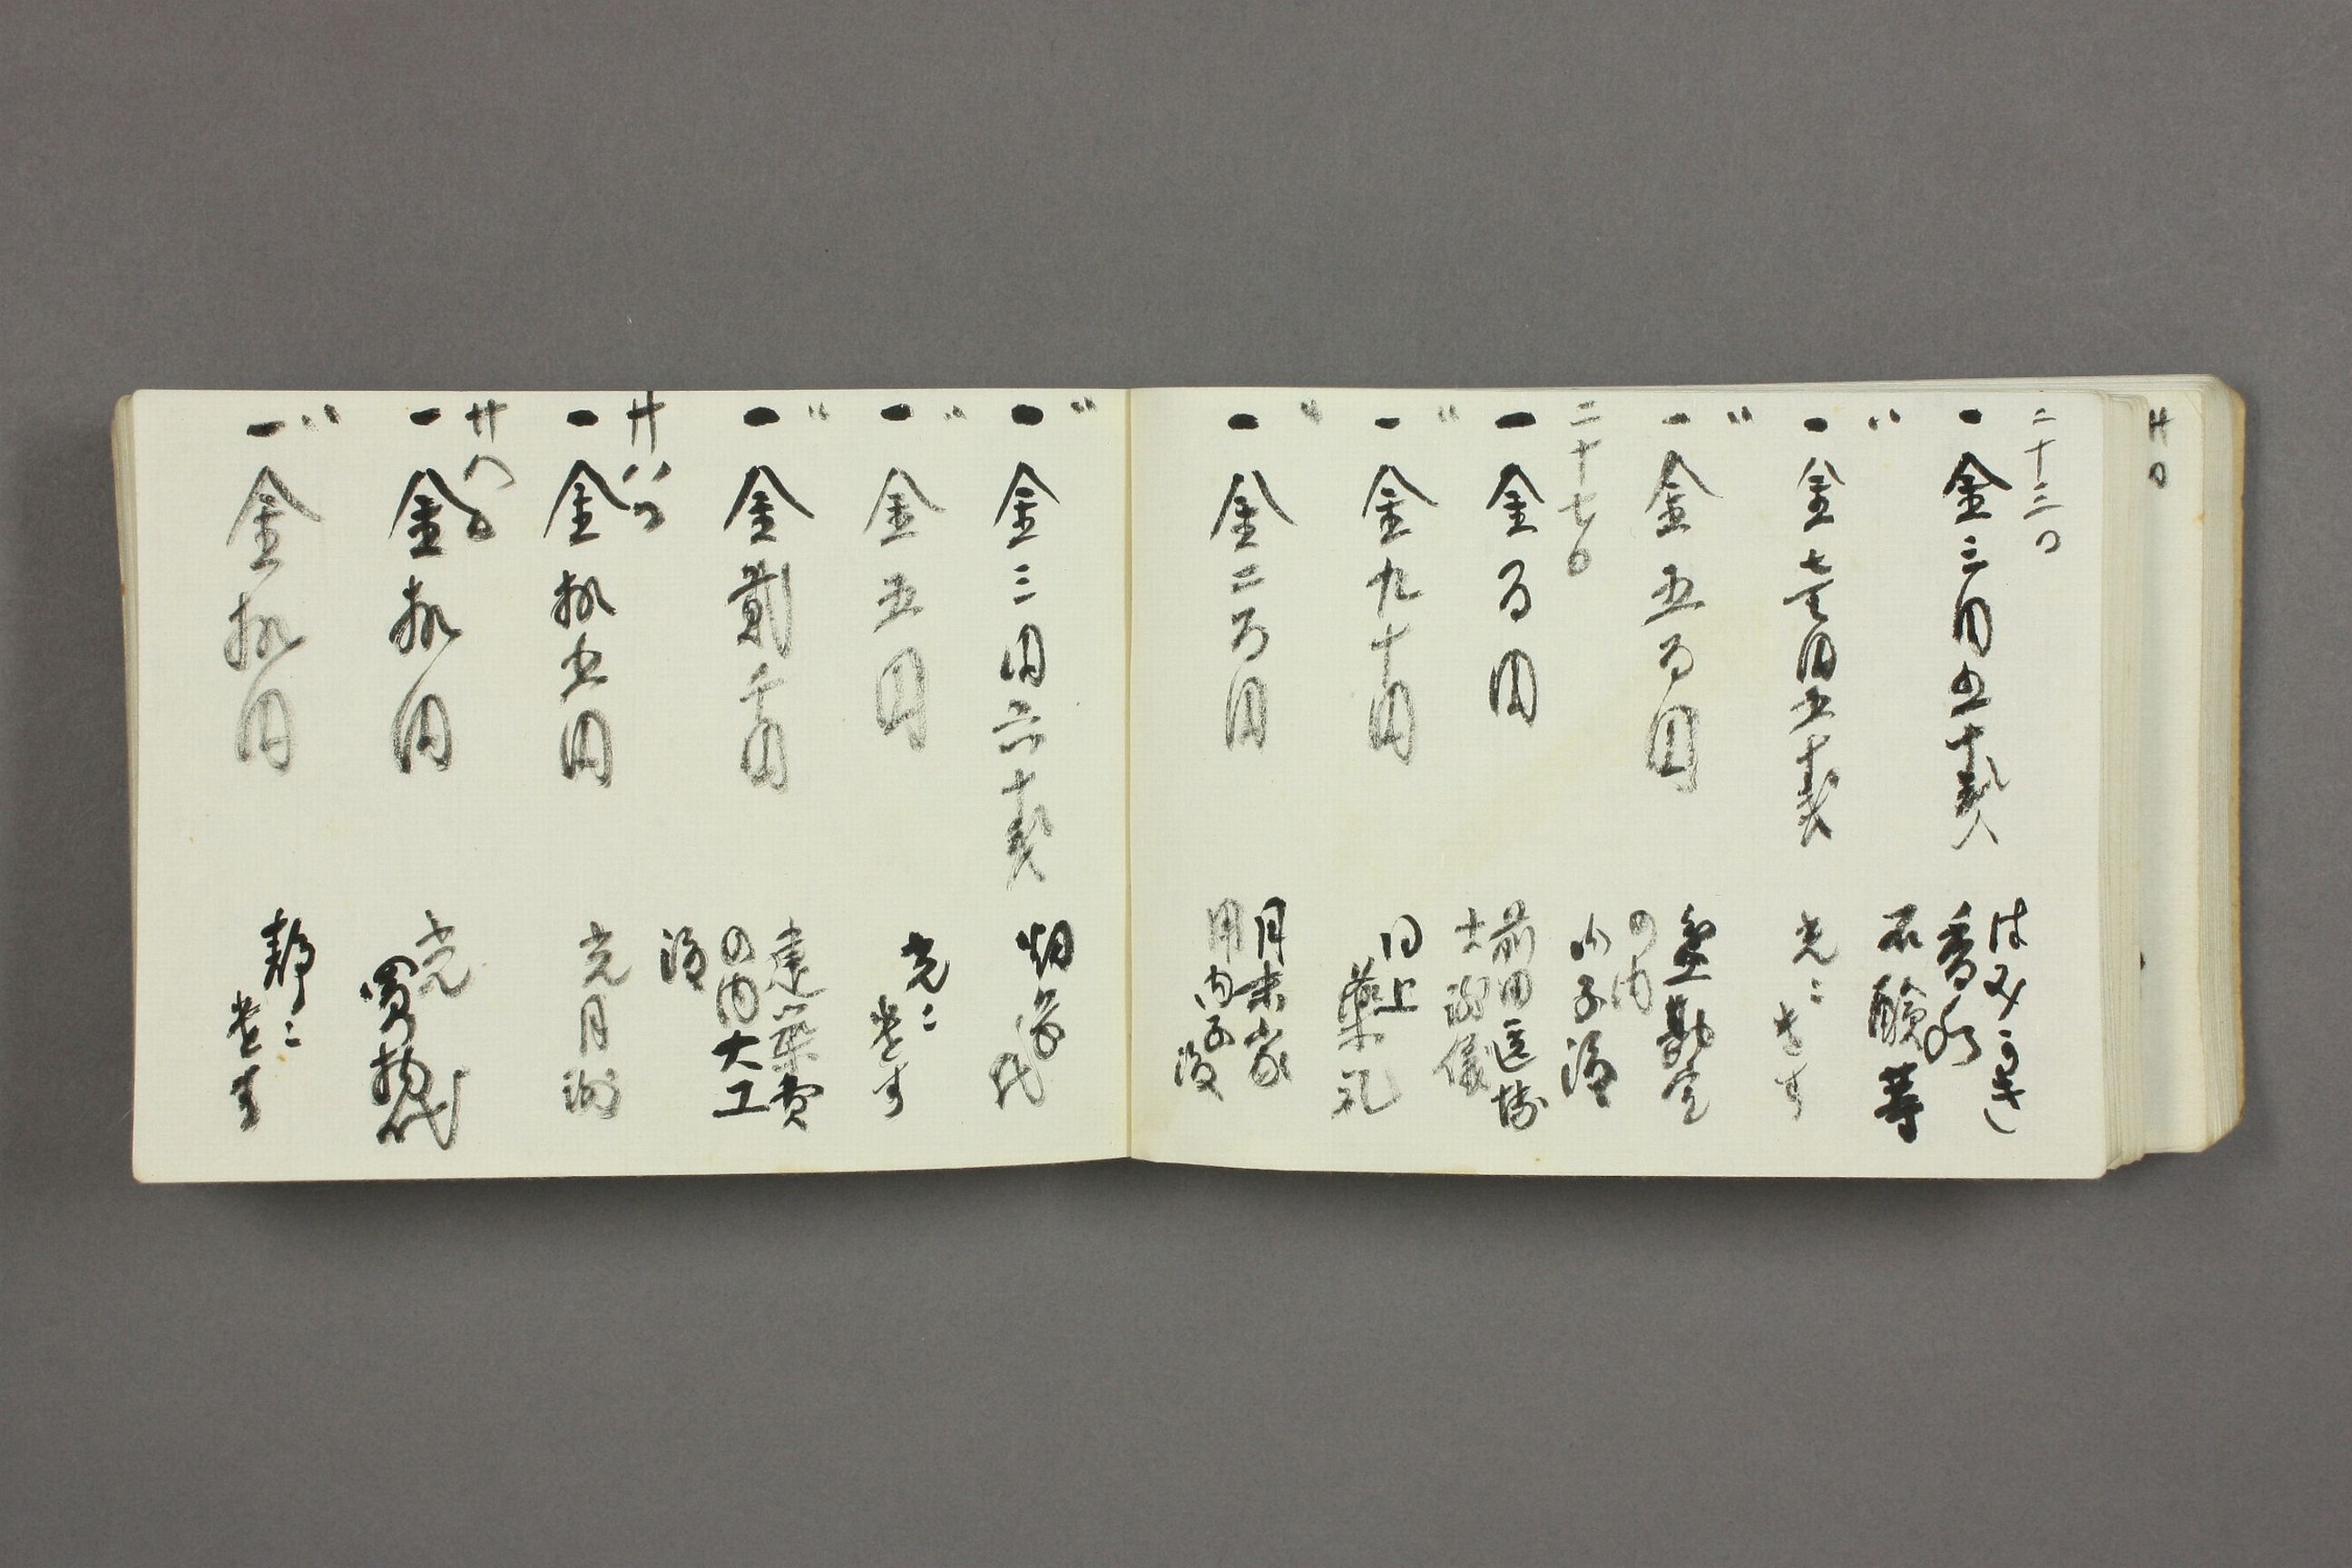 二十三日
一金三円五十銭
はみがき
香水
石酸等
〃
一金七円五十銭
光ニ
〃
一金五百円
盆勘定
の内
内子渡
二十七日
一金百円
前田医博
士謝儀
〃
一金九十円
同上
薬礼
〃
一金二百円
月末家
用内子渡
〃
一金三円六十銭
代
〃
一金五円
光ニ
〃
一金貳千円
建築費
の内大工
渡
廿八日
一金拾五円
光月謝
廿八日
一金拾円
光
買物代
〃
一金拾円
静ニ
廿日